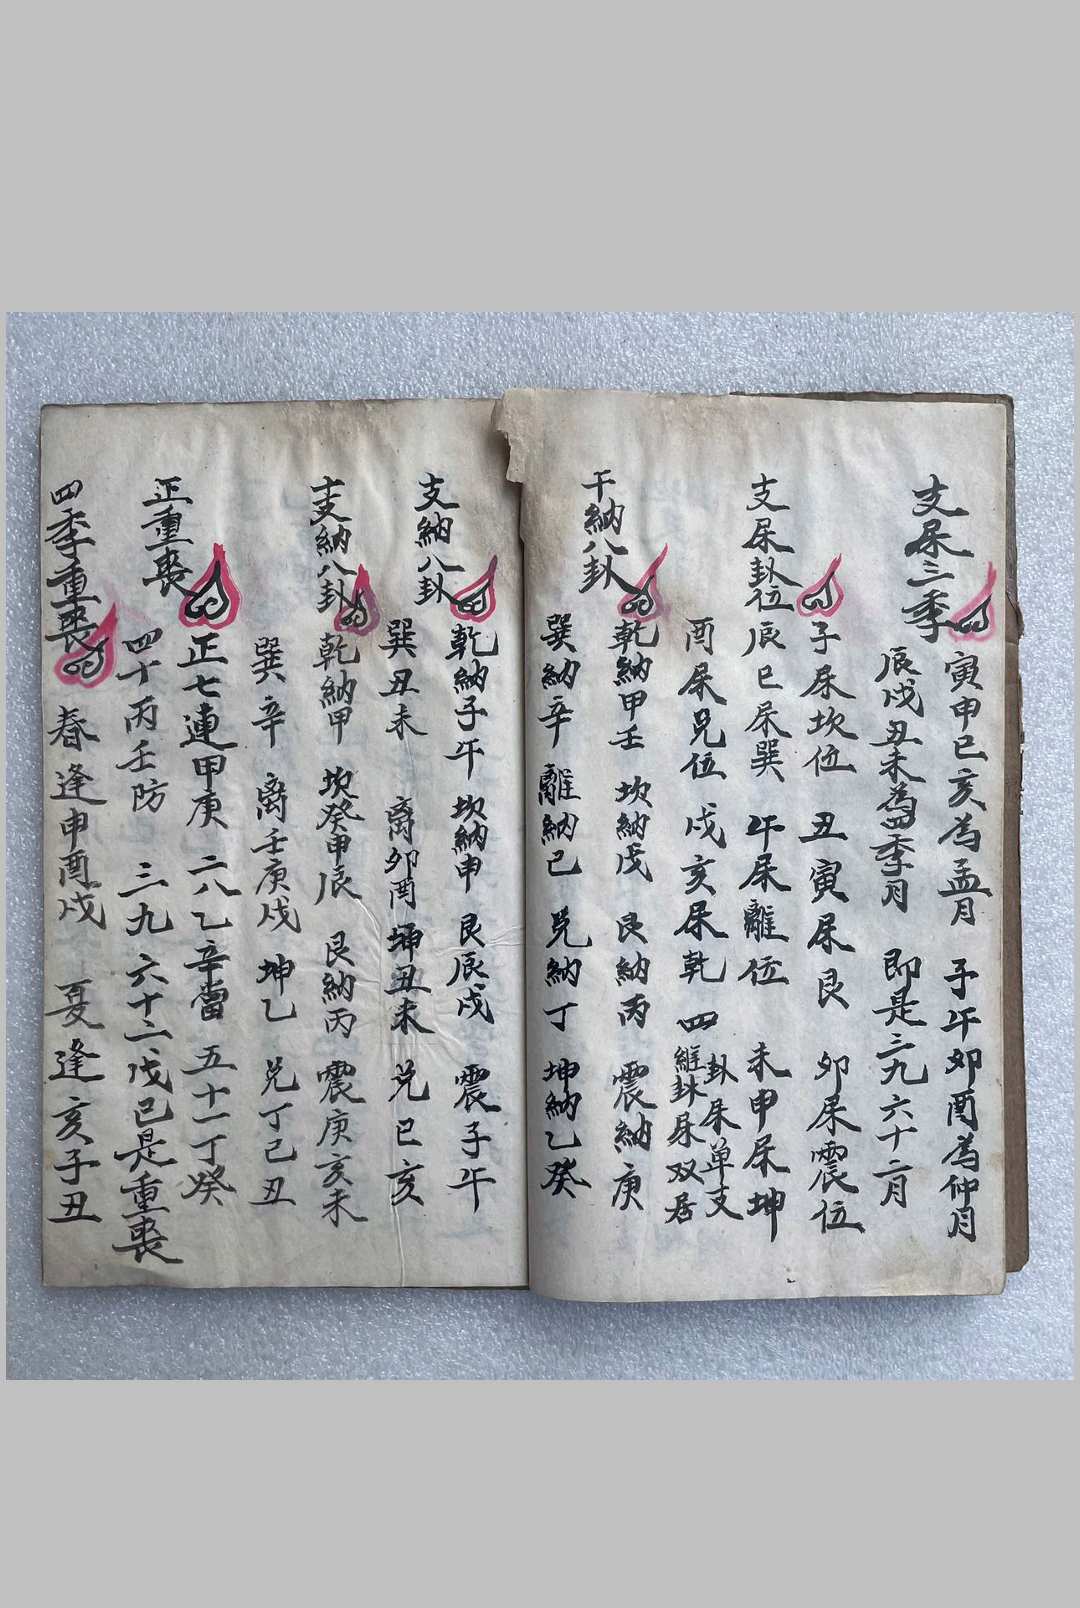 支屎三季
寅申巳亥為孟月 子午卯酉為仲月
辰戌丑未為四季月 即是三九六十二月
支屎卦位
子屎坎位 丑寅屎艮 卯屎震位
辰巳屎巽 午屎離位 未申屎坤
酉屎兌位 戌亥屎乾 四
卦屎單支
維卦屎双居
干納八卦
乾納甲壬 坎納戊 艮納丙 震納庚
巽納辛 離納己 兌納丁 坤納乙癸
支納八卦
乾納子午 坎納申 艮辰戌 震子午
巽丑未 离卯酉 坤丑未 兌巳亥
支納八卦
乾納甲 坎癸申辰 艮納丙 震庚亥未
巽辛 离壬庚戌 坤乙 兌丁己丑
正重喪
正七連甲庚 二八乙辛當 五十一丁癸
四十丙壬防 三九六十二戊己是重喪
四季重喪
春逢申酉戌 夏逢亥子丑